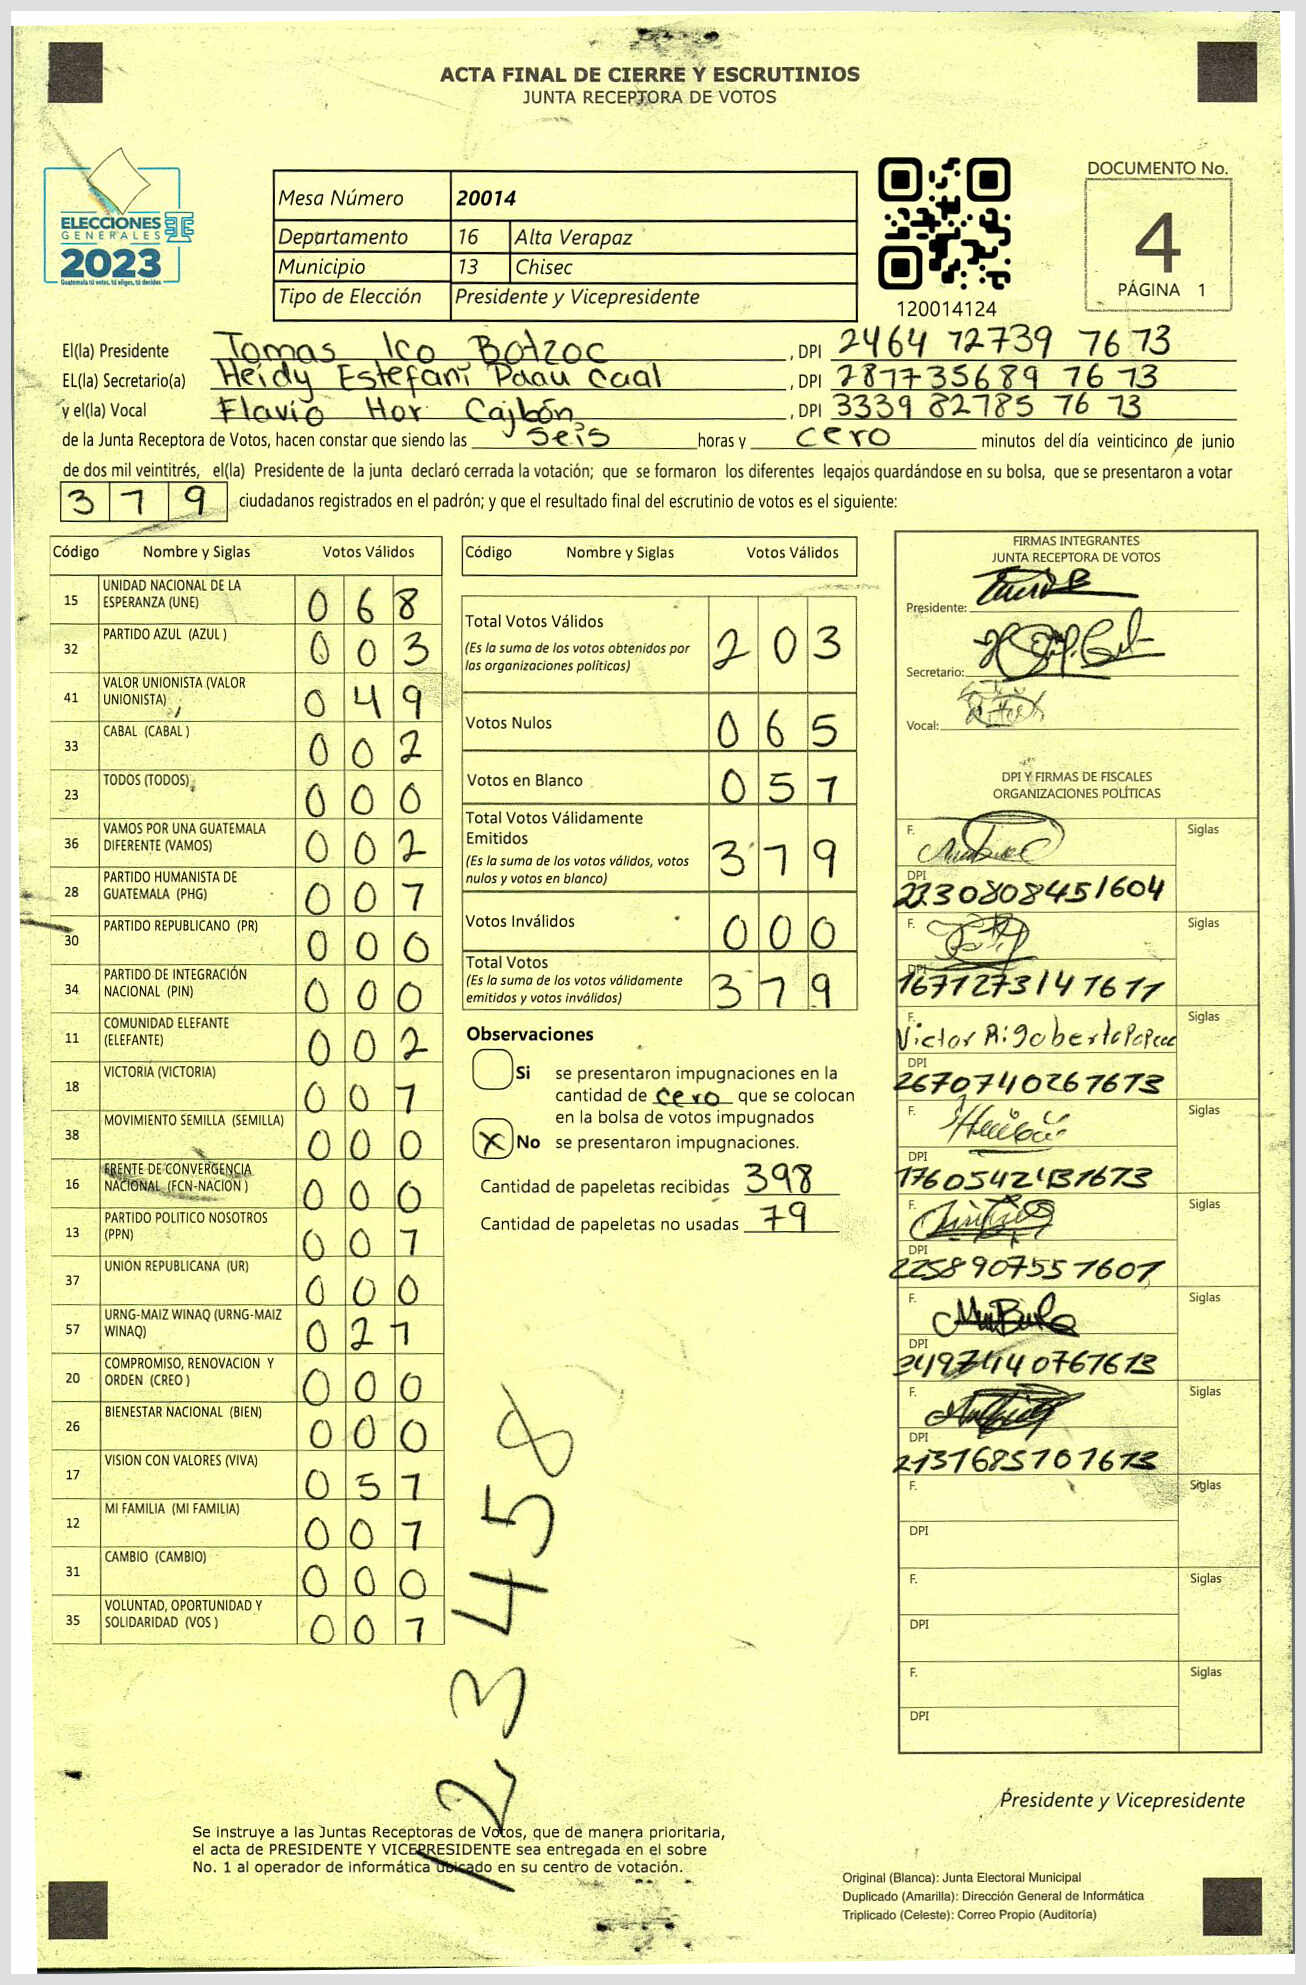 ACTA FINAL DE CIERRE Y ESCRUTINIOS
JUNTA RECEPTORA DE VOTOS
ELECCIONES
GENERALES
2023
Guatemala tú votas, tú eliges, tú decides
Mesa Número 20014
Departamento 16 Alta Verapaz
Municipio 13 Chisec
Tipo de Elección Presidente y Vicepresidente
120014124
DOCUMENTO No.
4
PÁGINA 1
El(la) Presidente Tomas Ico Botzoc , DPI 2464 72739 76 73
EL(la) Secretario(a) Heidy Estefani Paau Caal , DPI 287735689 76 73
y el(la) Vocal Flavio Hor Cajbón , DPI 3339 82785 76 73
de la Junta Receptora de Votos, hacen constar que siendo las seis horas y cero minutos del día veinticinco de junio
de dos mil veintitrés, el(la) Presidente de la junta declaró cerrada la votación; que se formaron los diferentes legajos guardándose en su bolsa, que se presentaron a votar
379 ciudadanos registrados en el padrón; y que el resultado final del escrutinio de votos es el siguiente:
Código Nombre y Siglas Votos Válidos
15 UNIDAD NACIONAL DE LA ESPERANZA (UNE) 068
32 PARTIDO AZUL (AZUL ) 003
41 VALOR UNIONISTA (VALOR UNIONISTA) 049
33 CABAL (CABAL ) 002
23 TODOS (TODOS) 000
36 VAMOS POR UNA GUATEMALA DIFERENTE (VAMOS) 002
28 PARTIDO HUMANISTA DE GUATEMALA (PHG) 007
30 PARTIDO REPUBLICANO (PR) 000
34 PARTIDO DE INTEGRACIÓN NACIONAL (PIN) 000
11 COMUNIDAD ELEFANTE (ELEFANTE) 002
18 VICTORIA (VICTORIA) 007
38 MOVIMIENTO SEMILLA (SEMILLA) 000
16 FRENTE DE CONVERGENCIA NACIONAL (FCN-NACION ) 000
13 PARTIDO POLITICO NOSOTROS (PPN) 007
37 UNION REPUBLICANA (UR) 000
57 URNG-MAIZ WINAQ (URNG-MAIZ WINAQ) 027
20 COMPROMISO, RENOVACION Y ORDEN (CREO ) 000
26 BIENESTAR NACIONAL (BIEN) 000
17 VISION CON VALORES (VIVA) 057
12 MI FAMILIA (MI FAMILIA) 007
31 CAMBIO (CAMBIO) 000
35 VOLUNTAD, OPORTUNIDAD Y SOLIDARIDAD (VOS ) 007
Código Nombre y Siglas Votos Válidos
Total Votos Válidos 203
(Es la suma de los votos obtenidos por
las organizaciones políticas)
Votos Nulos 065
Votos en Blanco 057
Total Votos Válidamente
Emitidos 379
(Es la suma de los votos válidos, votos
nulos y votos en blanco)
Votos Inválidos 000
Total Votos 379
(Es la suma de los votos válidamente
emitidos y votos inválidos)
Observaciones
Si se presentaron impugnaciones en la
cantidad de cero que se colocan
en la bolsa de votos impugnados
X No se presentaron impugnaciones.
Cantidad de papeletas recibidas 398
Cantidad de papeletas no usadas 79
123458
FIRMAS INTEGRANTES
JUNTA RECEPTORA DE VOTOS
Presidente:
Secretario:
Vocal:
DPI Y FIRMAS DE FISCALES
ORGANIZACIONES POLÍTICAS
F. Siglas
DPI
2230808451604
F. Siglas
DPI
1671273141611
F. Victor Rigoberto Siglas
DPI
2670740267673
F. Siglas
DPI
F. Siglas
DPI
2258907557607
F. Siglas
DPI
F. Siglas
DPI
2137685707673
F. Siglas
DPI
F. Siglas
DPI
F. Siglas
DPI
Presidente y Vicepresidente
Se instruye a las Juntas Receptoras de Votos, que de manera prioritaria,
el acta de PRESIDENTE Y VICEPRESIDENTE sea entregada en el sobre
No. 1 al operador de informática ubicado en su centro de votación.
Original (Blanca): Junta Electoral Municipal
Duplicado (Amarilla): Dirección General de Informática
Triplicado (Celeste): Correo Propio (Auditoría)